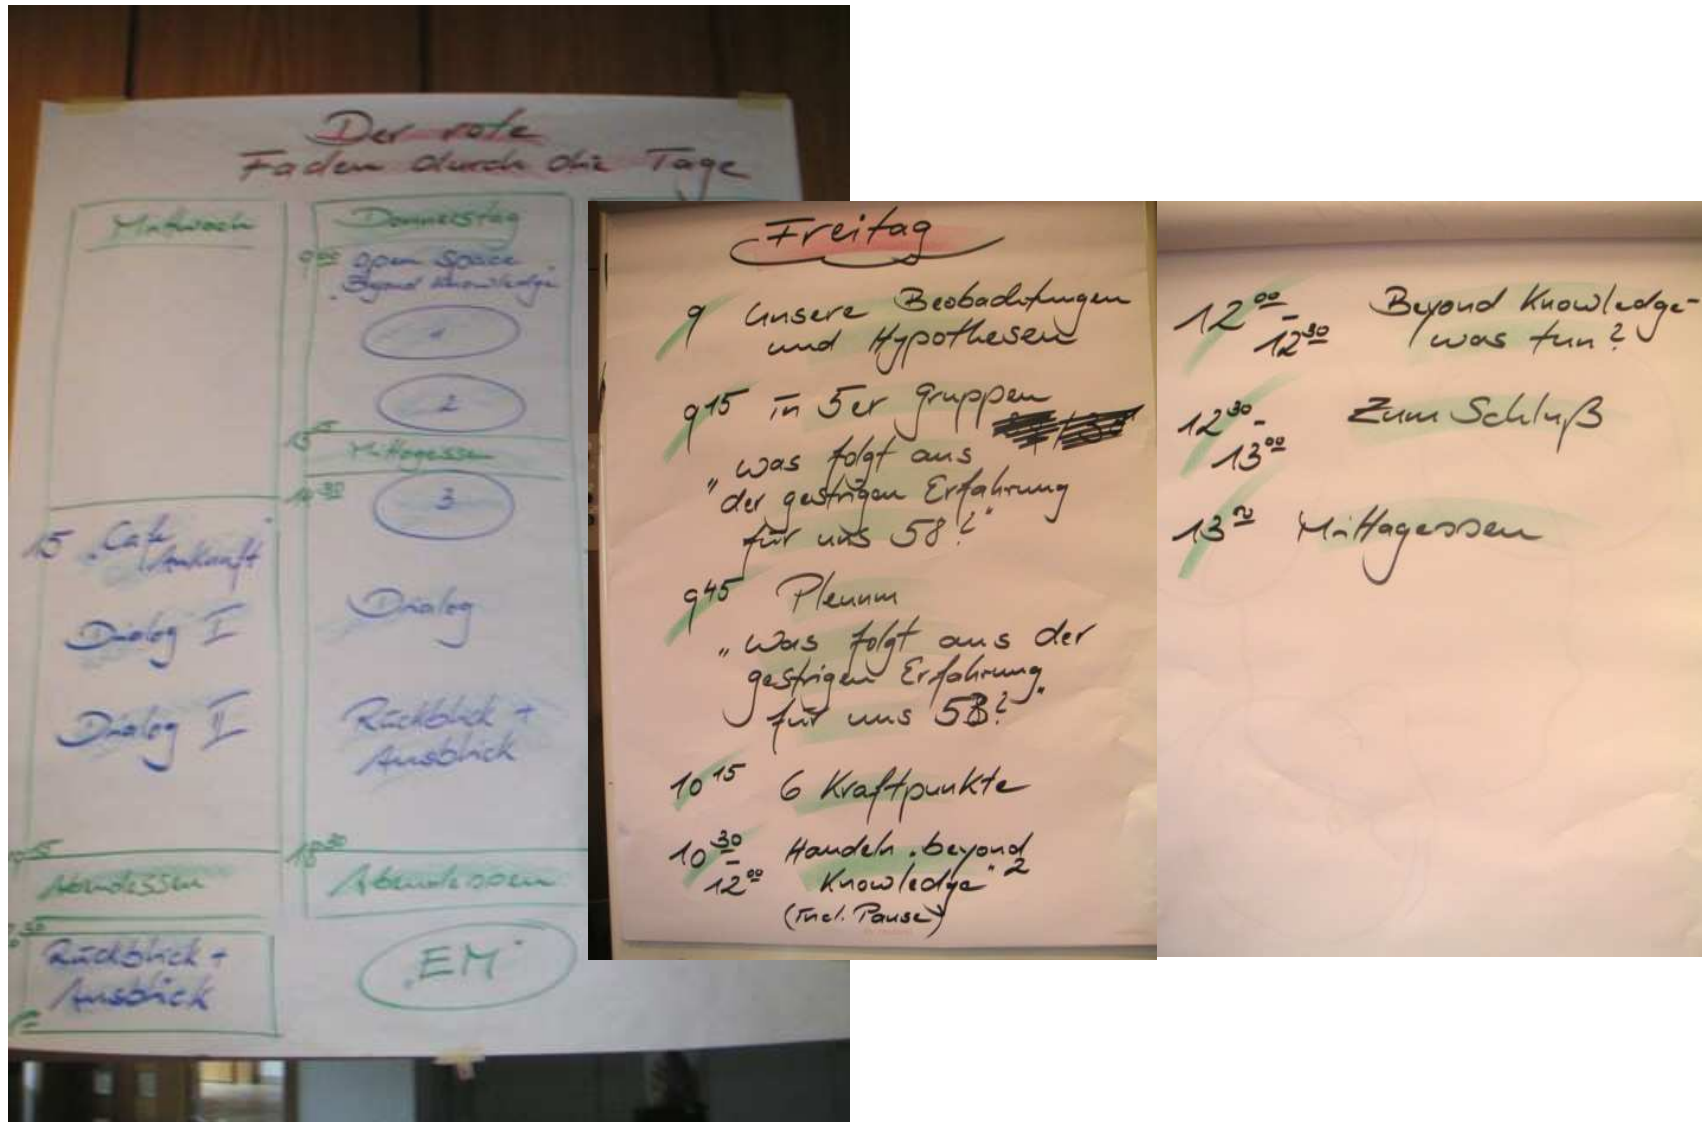 Der rote
Faden durch die Tage
Mittwoch
15 "Café
Ankunft"
Dialog I
Dialog II
Abendessen
Rückblick +
Ausblick
Donnerstag
9 00 open space
"Beyond Knowledge"
1
2
Mittagessen
14 30
3
Dialog
Rückblick +
Ausblick
18 30
Abendessen
"EM"
Freitag
9 Unsere Beobachtungen
und Hypothesen
9 15 in 5er Gruppen
"was folgt aus
der gestrigen Erfahrung
für uns 58?"
9 45 Plenum
"was folgt aus der
gestrigen Erfahrung
für uns 58?"
10 15 6 Kraftpunkte
10 30 Handeln "beyond
- 12 00 Knowledge" 2
(incl. Pause)
12 00 Beyond Knowledge -
- 12 30 was tun?
12 30 - Zum Schluß
13 00
13 Mittagessen